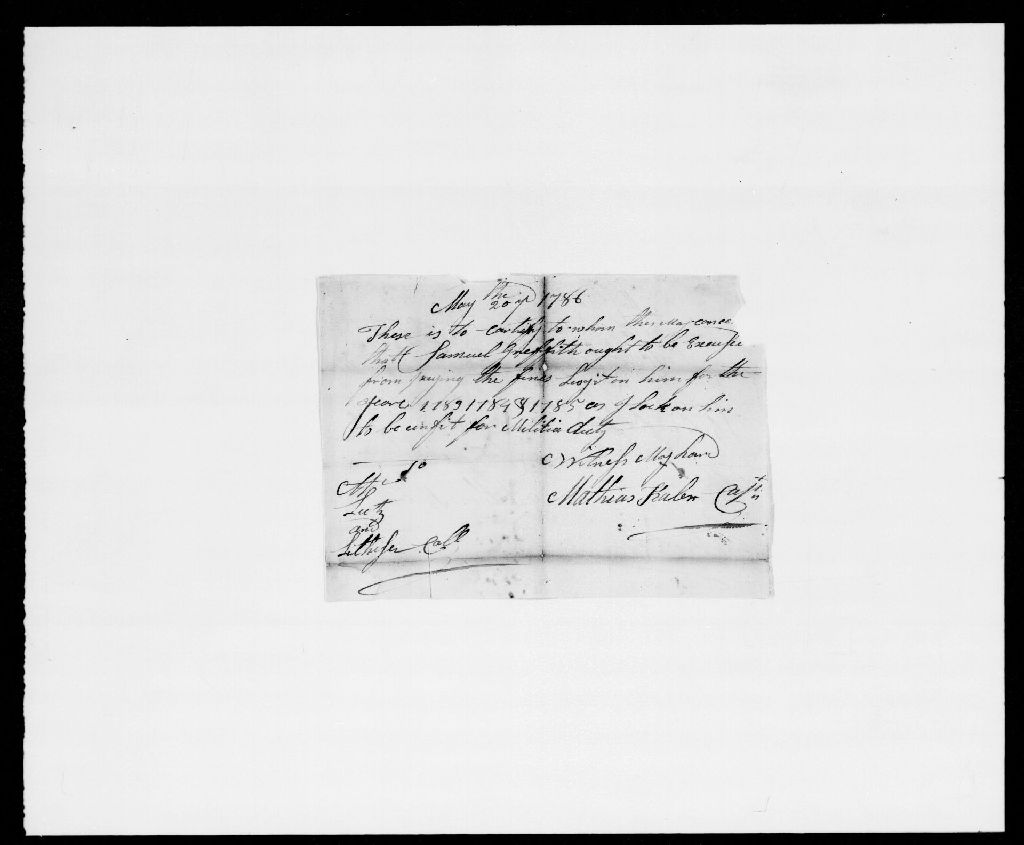 May the 20 1786
These is to certify to whom this Ma conce
thatt Samuel Greffith ought to be Excuse
from paying the fines in him for the
yeare 1783 1784 & 1785 as I look on him
to be unfit for Militia duty
Witness My hand
Mathias Capt
and